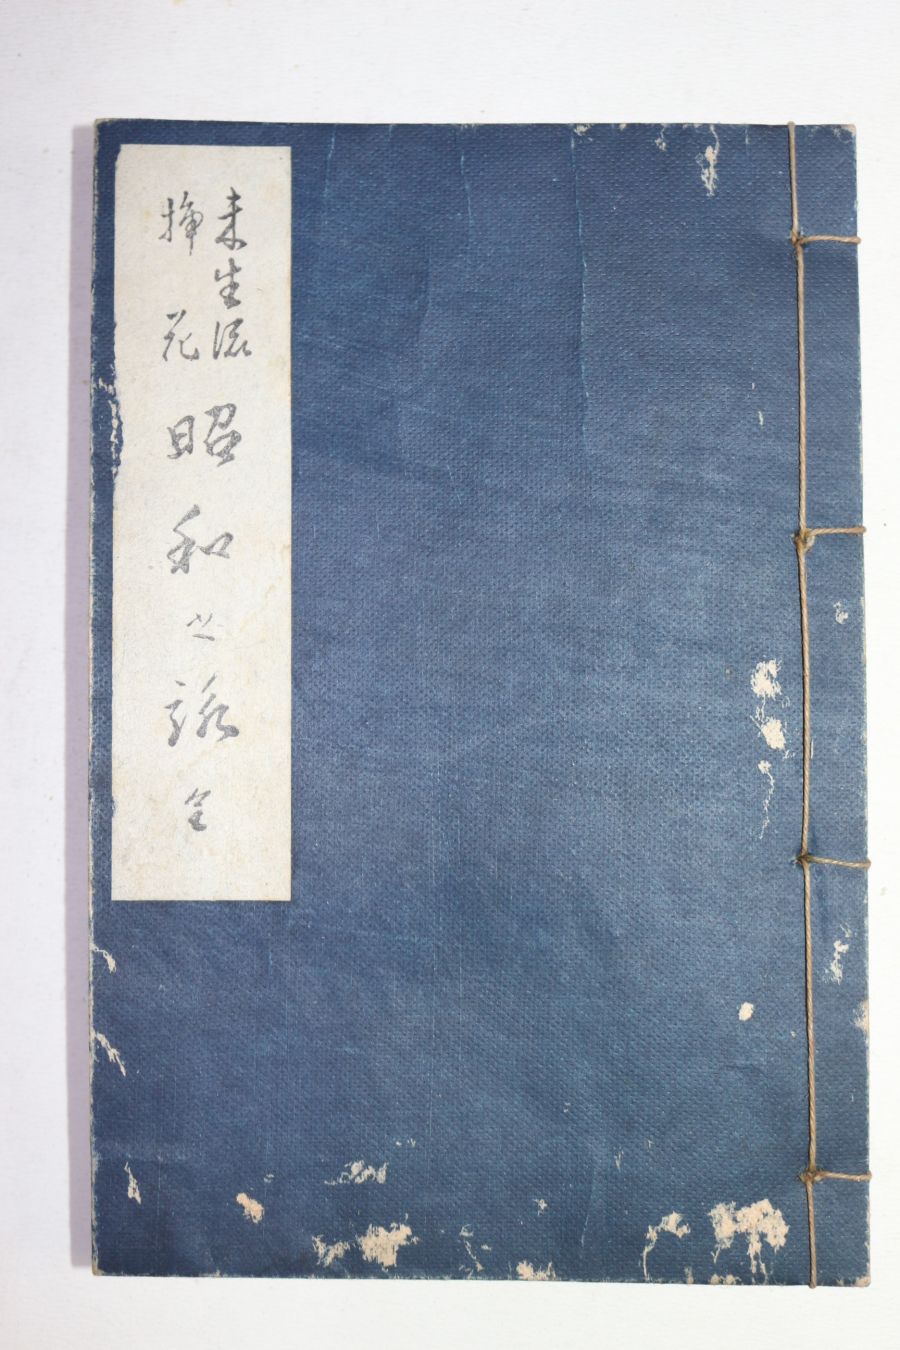 未生流
挿花
昭和之詠
全